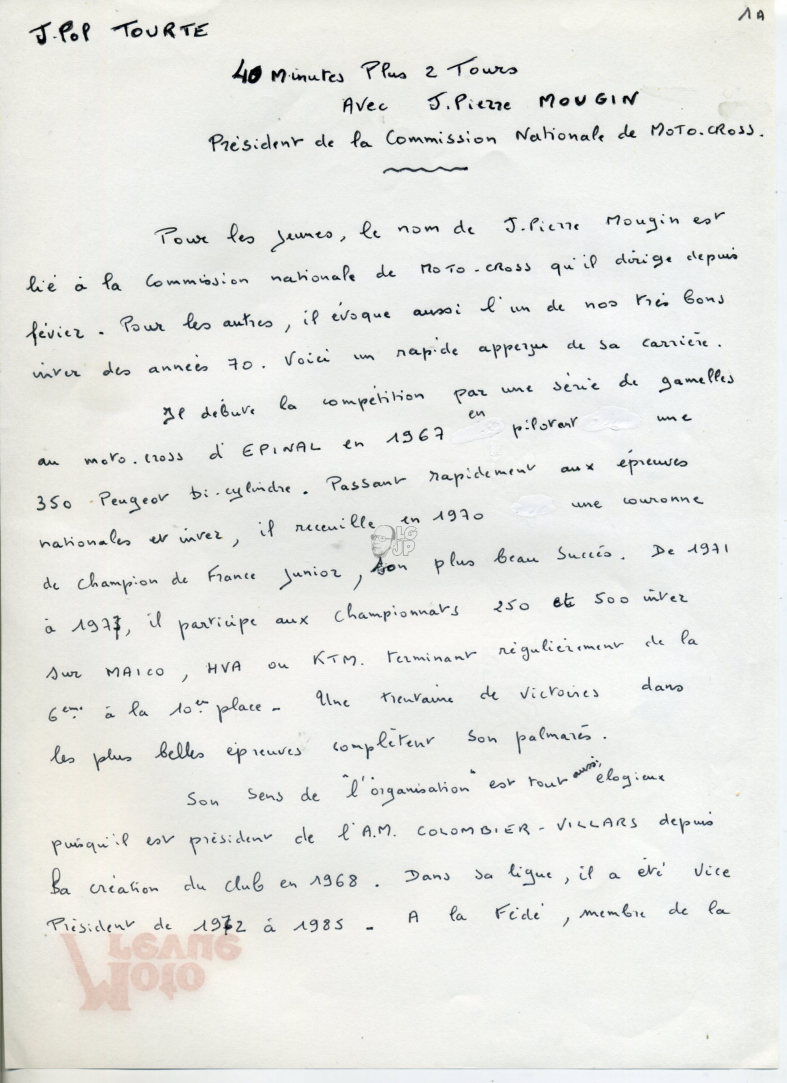 1A
J.POP TOURTE
40 Minutes Plus 2 Tours
Avec J.Pierre MOUGIN
Président de la Commission Nationale de MOTO-CROSS.
Pour les jeunes, le nom de J.Pierre Mougin est
lié à la Commission nationale de MOTO-CROSS qu'il dirige depuis
févier. Pour les autres, il évoque aussi l'un de nos très bons
inter des années 70. Voici un rapide apperçu de sa carrière.
Il débute la compétition par une série de gamelles
au moto.cross d'EPINAL en 1967 en pilotant une
350 Peugeot bi-cylindre. Passant rapidement aux épreuves
nationales et inter, il receuille en 1970 une couronne
LG
JP
de Champion de France Junior, son plus beau Succès. De 1971
à 1977, il participe aux Championnats 250 et 500 inter
sur MAICO, HVA ou KTM. terminant régulièrement de la
6eme à la 10em place - Une trentaine de victoires dans
les plus belles épreuves complètent son palmarès.
Son sens de "l'organisation" est tout aussi élogieux
puisqu'il est président de l'A.M. COLOMBIER-VILLARS depuis
la création du club en 1968. Dans sa ligue, il a été Vice
Président de 1972 à 1985 - A la Fédé, membre de la
Moto
Verte